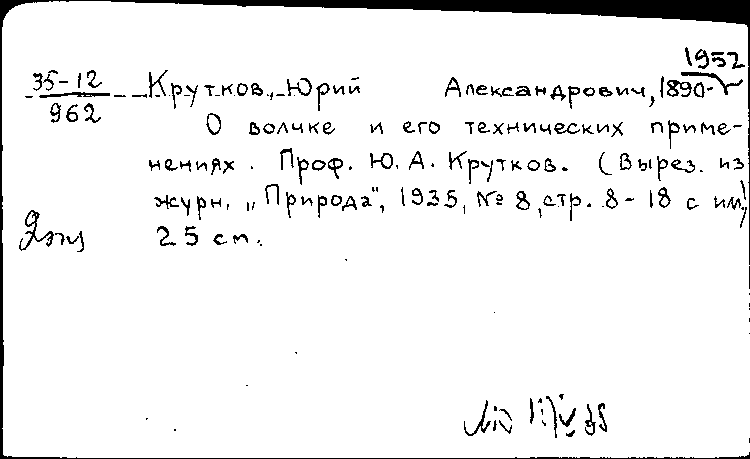 1952
35-12 Крутков, Юрий Александрович, 1890-
962
О волчке и его технических приме-
нениях. Проф. Ю. А. Крутков. (Вырез. из
журн. „Природа", 1935, № 8, стр. 8-18 с им.)
2эк3 25 см.